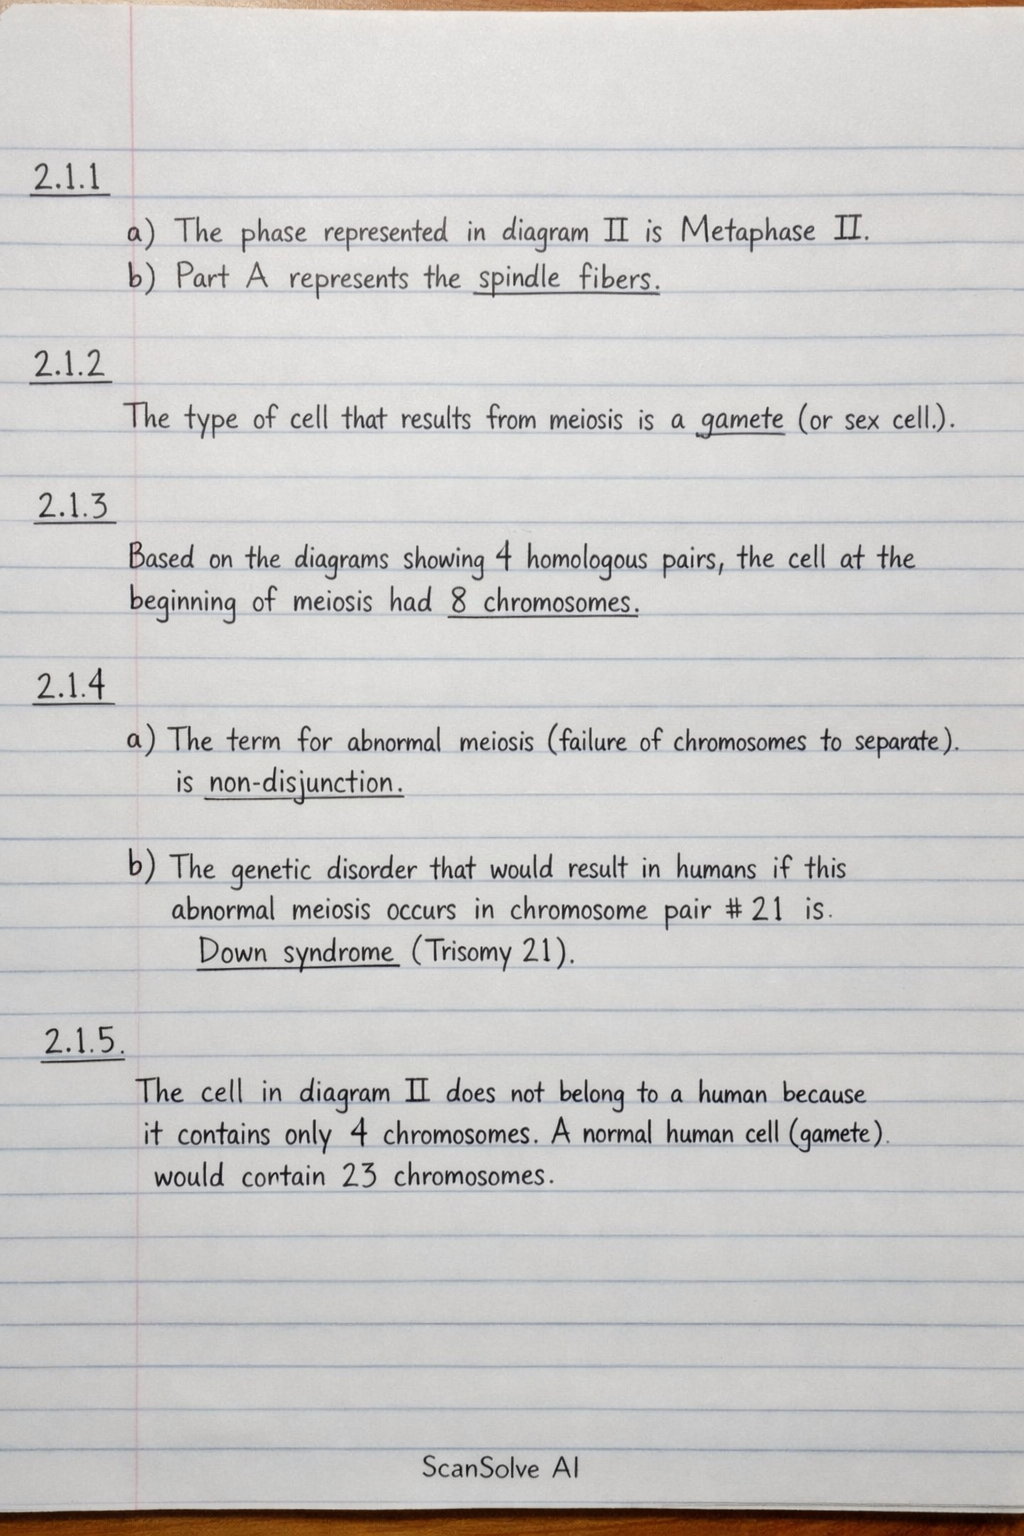 2.1.1
a) The phase represented in diagram II is Metaphase II.
b) Part A represents the spindle fibers.
2.1.2
The type of cell that results from meiosis is a gamete (or sex cell.).
2.1.3
Based on the diagrams showing 4 homologous pairs, the cell at the
beginning of meiosis had 8 chromosomes.
2.1.4
a) The term for abnormal meiosis (failure of chromosomes to separate).
is non-disjunction.
b) The genetic disorder that would result in humans if this
abnormal meiosis occurs in chromosome pair # 21 is.
Down syndrome (Trisomy 21).
2.1.5.
The cell in diagram II does not belong to a human because
it contains only 4 chromosomes. A normal human cell (gamete).
would contain 23 chromosomes.
ScanSolve AI